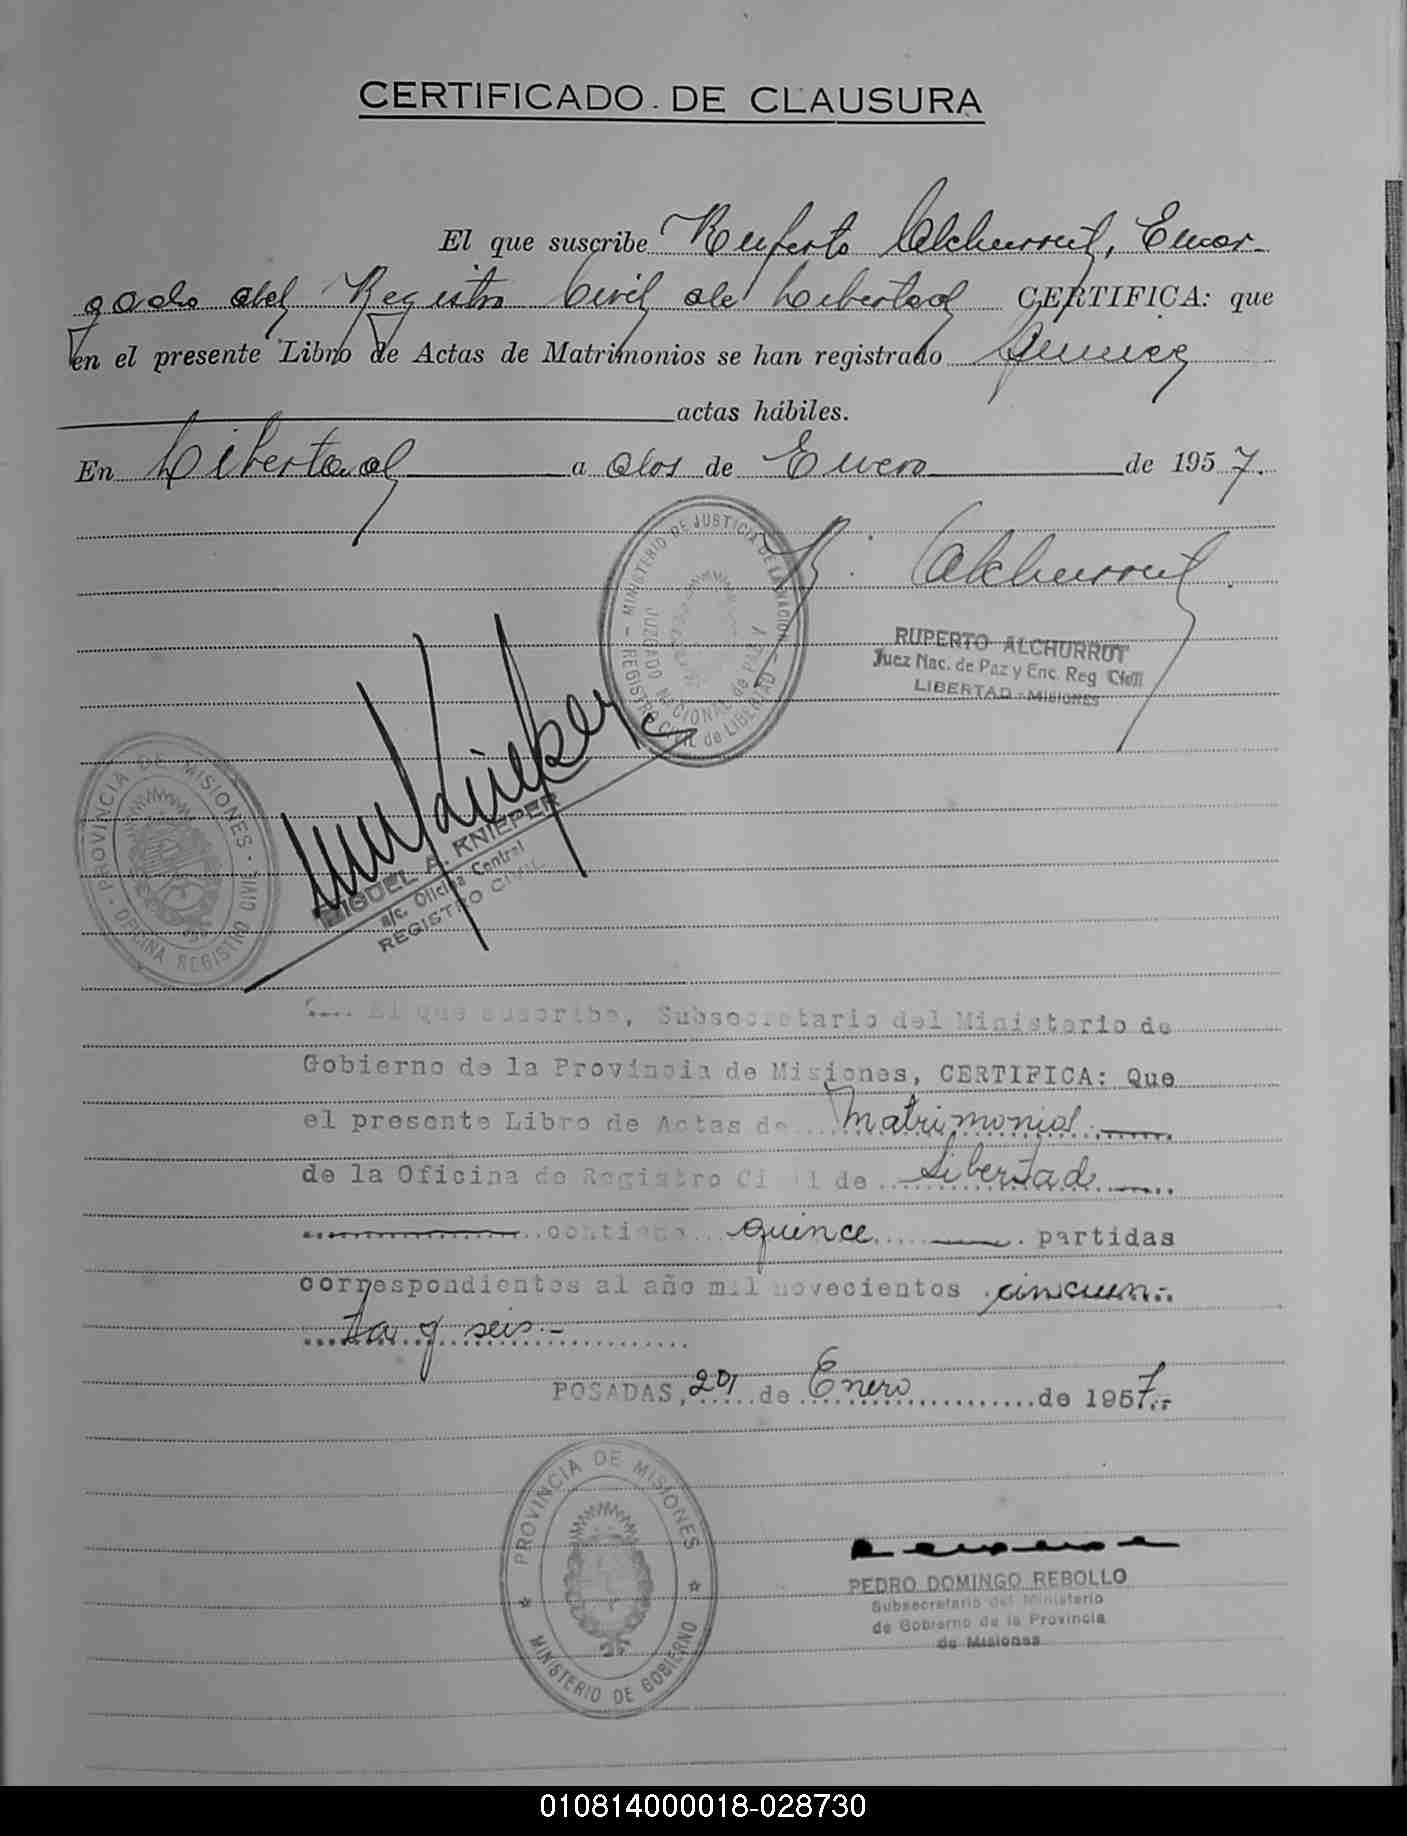 CERTIFICADO. DE CLAUSURA
El que suscribe Ruperto Alchurrut, Encar-
gado del Registro Civil de Libertad CERTIFICA: que
en el presente Libro de Actas de Matrimonios se han registrado Quince
actas hábiles.
En Libertad a dos de Enero de 1957.
R. Alchurrut.
MINISTERIO DE JUSTICIA DE LA NACION
JUZGADO NACIONAL de PAZ Y
REGISTRO CIVIL de LIBERTAD
RUPERTO ALCHURRUT
Juez Nac. de Paz y Enc. Reg Civil
LIBERTAD - MISIONES
PROVINCIA DE MISIONES
OFICINA REGISTRO CIVIL
MIGUEL A. KNIEPER
a/c. Oficina Central
REGISTRO CIVIL
El que suscribe, Subsecretario del Ministerio de
Gobierno de la Provincia de Misiones, CERTIFICA: Que
el presente Libro de Actas de Matrimonios
de la Oficina de Registro Civil de Libertad
contiene quince partidas
correspondientes al año mil novecientos cincuen
ta y seis.-
POSADAS, 29 de Enero de 1957.-
PROVINCIA DE MISIONES
MINISTERIO DE GOBIERNO
PEDRO DOMINGO REBOLLO
Subsecretario del Ministerio
de Gobierno de la Provincia
de Misiones
010814000018-028730